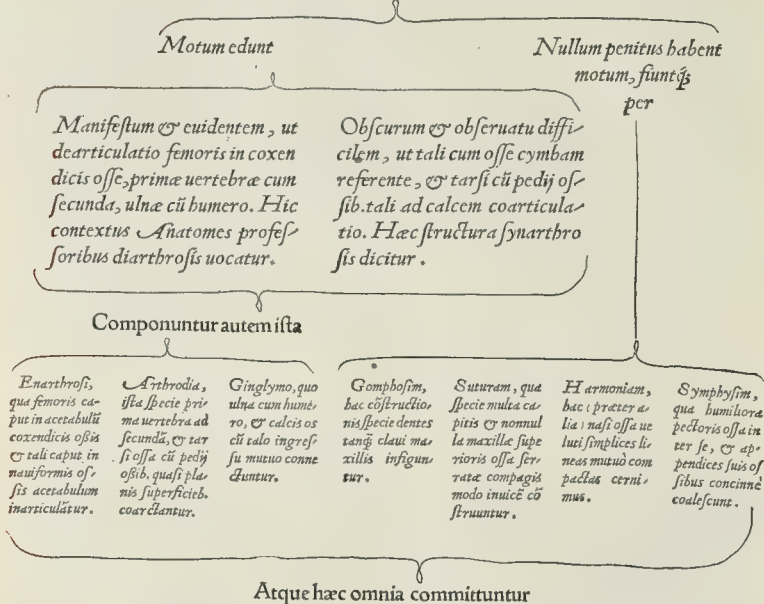 Motum edunt
Nullum penitus habent
motum, fiuntq́ꝫ
per
Manifeſtum & euidentem, ut
dearticulatio femoris in coxen
dicis oſſe, primæ uertebræ cum
ſecunda, ulnæ cū humero. Hic
contextus Anatomes profeſ-
ſoribus diarthroſis uocatur.
Obſcurum & obſeruatu diffi-
cilem, ut tali cum oſſe cymbam
referente, & tarſi cū pedij oſ-
ſib. tali ad calcem coarticula-
tio. Hæc ſtructura ſynarthro
ſis dicitur.
Componuntur autem iſta
Enarthroſi,
qua femoris ca-
put in acetabulū
coxendicis oßis
& tali caput in
nauiformis oſ-
ſis acetabulum
inarticulātur.
Arthrodia,
iſta ſpecie pri-
ma uertebra ad
ſecundā, & tar
ſi oſſa cū pedij
oßib. quaſi pla-
nis ſuperficieb.
coarctantur.
Ginglymo, quo
ulna cum hume-
ro, & calcis os
cū talo ingreſ-
ſu mutuo conne
ctuntur.
Gomphoſim,
hac cōſtructio-
nis ſpecie dentes
tanq̄ claui ma-
xillis infigun-
tur.
Suturam, qua
ſpecie multa ca-
pitis & nonnul
la maxillæ ſupe
rioris oſſa ſer-
ratæ compagis
modo inuicē cō
ſtruuntur.
Harmoniam,
hac (præter a-
lia) naſi oſſa ue
luti ſimplices li-
neas mutuò com
pactas cerni-
mus.
Symphyſim,
qua humiliora
pectoris oſſa in
ter ſe, & ap-
pendices ſuis oſ
ſibus concinnè
coaleſcunt.
Atque hæc omnia committuntur